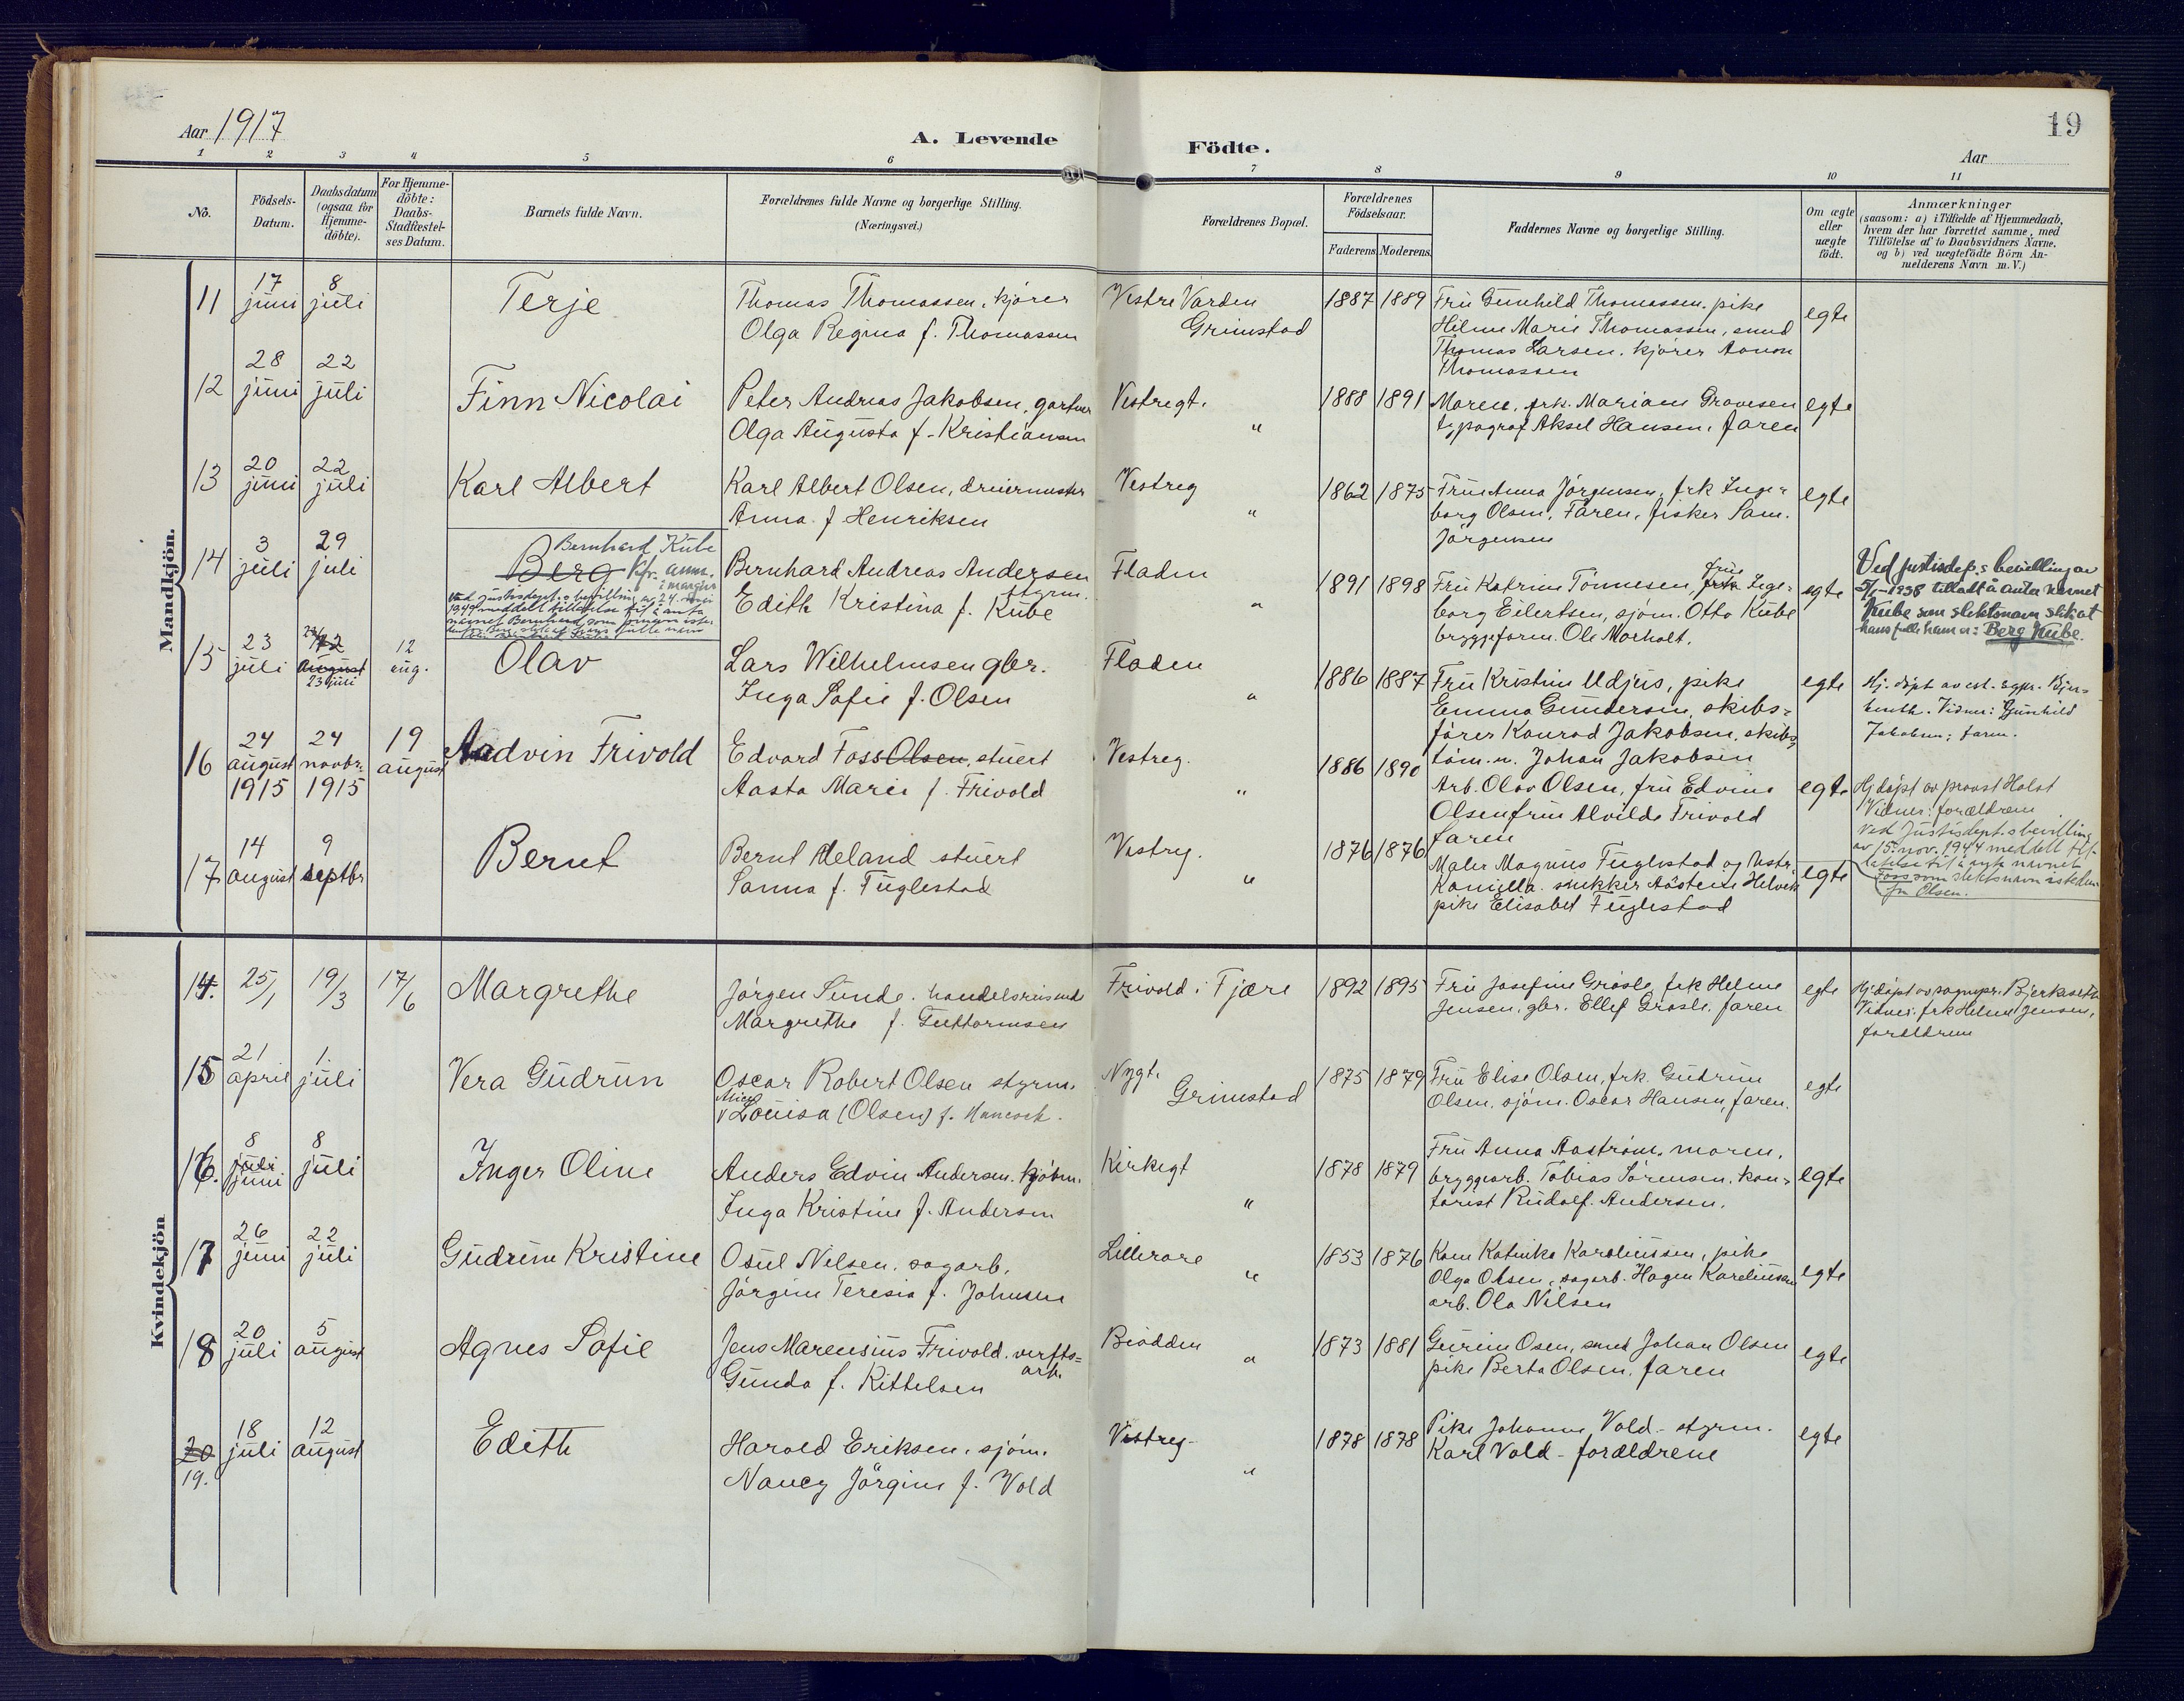 19
Aar 1917
A. Levende Födte.
Aar
1 2 3 4 5 6 7 8 9 10 11
No.
Födsels-
Datum.
Daabsdatum
(ogsaa for
Hjemme-
döbte).
For Hjemme-
döbte:
Daabs-
Stadfæstel-
ses Datum.
Barnets fulde Navn.
Forældrenes fulde Navne og borgerlige Stilling.
(Næringsvei.)
Forældrenes Bopæl.
Forældrenes
Födselsaar.
Faderens. Moderens.
Faddernes Navne og borgerlige Stilling.
Om ægte
eller
uægte
födt.
Anmærkninger
(saasom: a) i Tilfælde af Hjemmedaab,
hvem der har forrettet samme, med
Tilföielse af to Daabsvidners Navne,
og b) ved uægtefödte Börn An-
melderens Navn m. V.)
Mandkjön.
11
17
juni
8
juli
Terje
Thomas Thomassen, kjører
Olga Regina f. Thomassen
Vestre Varden
Grimstad
1887 1889
Fru Gunhild Thomassen, pike
Hilme Marie Thomassen, smed
Thomas Larsen, kjører Aanon
Thomassen
egte
12
28
juni
22
juli
Finn Nicolai
Peter Andreas Jakobsen, gartner
Olga Augusta f. Kristiansen
Vestregt.
"
1888 1891
Moren, frk. Mariane Gravesen
typograf Aksel Hansen, faren
egte
13
20
juni
22
juli
Karl Albert
Karl Albert Olsen, dreiermester
Anna f. Henriksen
Vestreg
"
1862 1875
Fru Anna Jörgensen, frk Inge-
borg Olsen, Faren, fisker Sam.
Jörgensen
egte
14
3
juli
29
juli
Bernhard Kube
Berg kfr. anm.
i margin
Ved Justisdept.s bevilling av 24. mai
1949 meddelt tillatelse til å anta
navnet Bernhard som fornavn istedenfor
Bernhard Andreas Andersen
styrm.
Edith Kristina f. Kube
Fladen
"
1891 1898
Fru Katrine Tönnesen, frk fru Inge-
borg Eilertsen, sjöm. Otto Kube
bryggeform. Ole Morholt.
egte
Ved justisdep.s bevilling av
5/1-1938 tillatt å anta navnet
Kube som slektsnavn slik at
hans fulle navn er: Berg Kube.
15
23
juli
august
23 juli
12
aug.
Olav
Lars Wilhelmsen gbr.
Inga Sofie f. Olsen
Fladen
"
1886 1887
Fru Kristine Udjus, pike
Emma Gundersen, skibs-
förer Konrad Jakobsen, skibs-
töm.m. Johan Jakobsen
egte
Hj. döpt av est. sgpr. Bjer-
kseth. Vidner: Gunhild
Jakobsen; faren.
16
24
august
1915
24
novbr.
1915
19
august
Audvin Frivold
Edvard Foss Olsen, stuert
Aasta Marie f. Frivold
Vestreg.
"
1886 1890
Arb. Olav Olsen, fru Edvine
Olsen fru Alvilde Frivold
faren
egte
Hj döpt av provst Holst
Vidner: forældrene
Ved Justisdept.s bevilling
av 15. nov. 1944 meddelt til-
latelse til å anta navnet
Foss som slektsnavn isteden-
for Olsen.
17
14
august
9
septbr
Bernt
Bernt Aeland stuert
Sanna f. Fuglestad
Vestreg.
"
1876 1876
Maler Magnus Fuglestad og hustr.
Kamilla. snekker Aösteen Helvik
pike Elisabet Fuglestad
egte
Kvindekjön
14.
25/1
19/3
17/6
Margrethe
Jörgen Sunde, handelsreisende
Margrethe f. Guttormsen
Frivold i Fjære
1892 1895
Fru Josefine Grösle, frk Helene
Jensen, gbr. Ellef Grösle, faren
egte
Hj. döpt av sognepr. Bjerkseth
Vidner: frk Helene Jensen,
forældrene
15
21
april
1.
juli
Vera Gudrun
Oscar Robert Olsen styrm.
Alice
Louisa (Olsen) f. Hancock.
Nygt.
Grimstad
1875 1879
Fru Elise Olsen, frk. Gudrun
Olsen, sjöm. Oscar Hansen, faren.
egte
16.
8
juli
juni
8
juli
Inger Oline
Anders Edvin Andersen, kjöbm.
Inga Kristine f. Andersen
Kirkegt
"
1878 1879
Fru Anna Aaström, moren,
bryggearb. Tobias Sörensen, kon-
torist Rudolf Andersen.
egte
17
26
juni
22
juli
Gudrun Kristine
Osul Nilsen, sagarb.
Jörgine Teresia f. Johnsen
Lillerare
"
1853 1876
Kone Katinka Karoliussen, pike
Olga Olsen, sagarb. Hagen Karoliussen
arb. Ola Nilsen
egte
18
20
juli
5
august
Agnes Sofie
Jens Marensius Frivold, verfts-
arb.
Gunda f. Kittelsen
Biodden
"
1873 1881
Gurine Osen, smed Johan Olsen
pike Berta Olsen, faren
egte
20
19.
18
juli
12
august
Edith
Harald Eriksen, sjöm.
Nancy Jörgine f. Vold
Vestreg-
"
1878 1878
Pike Johanne Vold - styrm.
Karl Vold - forældrene
egte